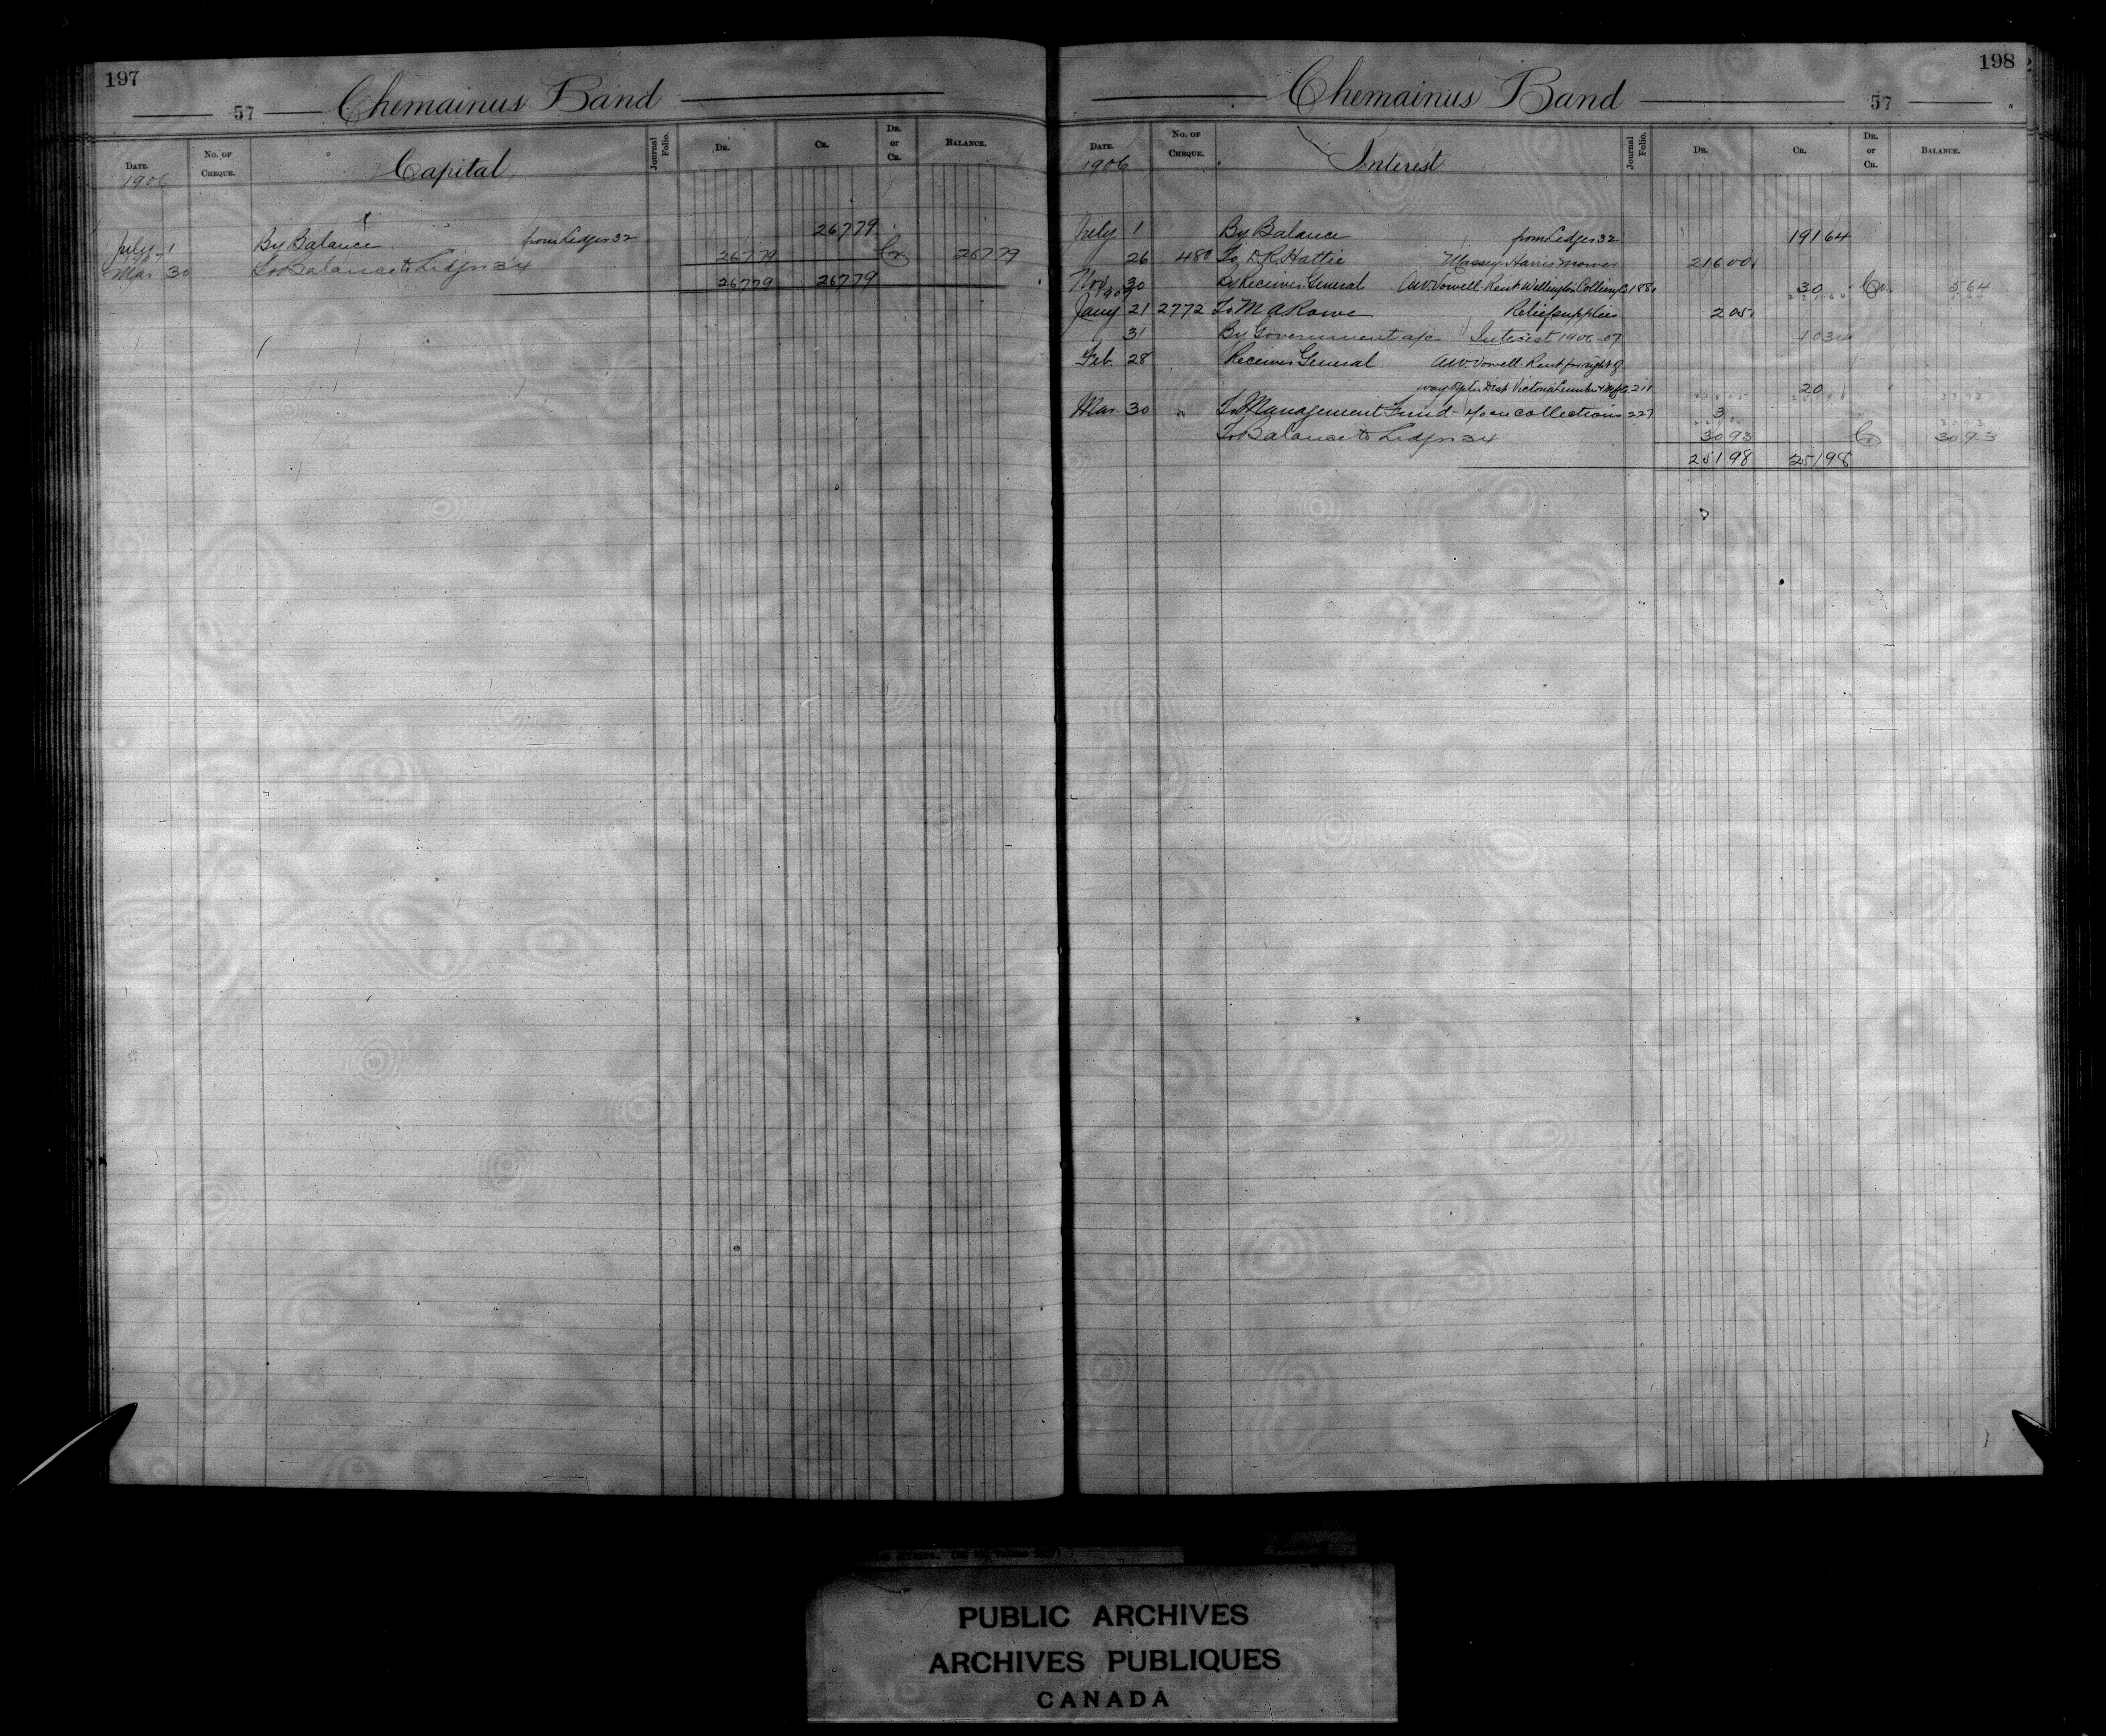 197
57 Chemainus Band
DATE. No. OF CHEQUE. Capital Journal Folio. DR. CR. DR. or CR. BALANCE.
1906
July 1 By Balance from Ledger 32 267 79
1907
Mar 30 To Balance to Ledger 34 267 79 Cr 267 79
267 79 267 79
198
Chemainus Band 57
DATE. No. OF CHEQUE. Interest Journal Folio. DR. CR. DR. or CR. BALANCE.
1906
July 1 By Balance from Ledger 32 191 64
26 480 To D R Hattie Massey Harris Mower 216 00
Nov 30 By Receiver General A.W. Vowell Rent Wellington Colliery Co 188 30 Cr. 5 64
1907
Jany 21 2772 To M A Rowe Relief supplies 2 05
31 By Government a/c Interest 1906-07 10 34
Feb. 28 Receiver General A.W. Vowell Rent for right of
way Victoria Lumber & Mfg Co. 211 20
Mar. 30 " To Management Fund collections 227 3
To Balance to Ledger 34 30 93 Cr 30 93
251 98 251 98
PUBLIC ARCHIVES
ARCHIVES PUBLIQUES
CANADA